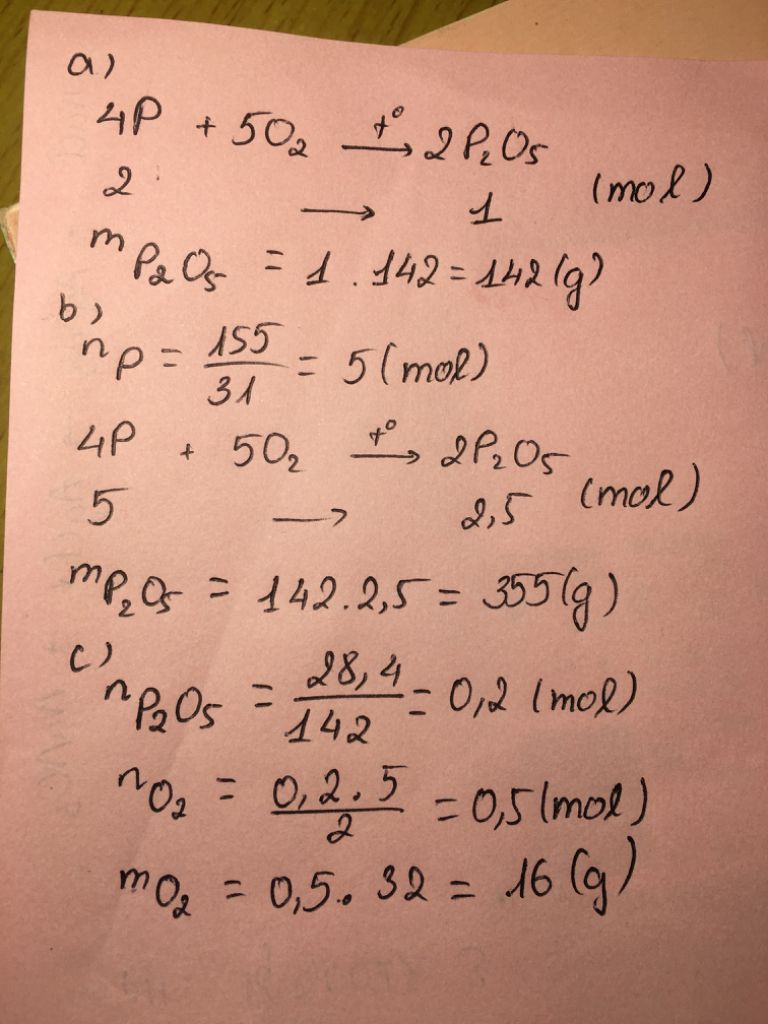 a)
4P + 5O₂ —t°→ 2P₂O₅
2 → 1 (mol)
m P₂O₅ = 1 . 142 = 142 (g)
b)
n P = 155/31 = 5 (mol)
4P + 5O₂ —t°→ 2P₂O₅
5 → 2,5 (mol)
m P₂O₅ = 142 . 2,5 = 355 (g)
c)
n P₂O₅ = 28,4/142 = 0,2 (mol)
n O₂ = 0,2 . 5/2 = 0,5 (mol)
m O₂ = 0,5 . 32 = 16 (g)